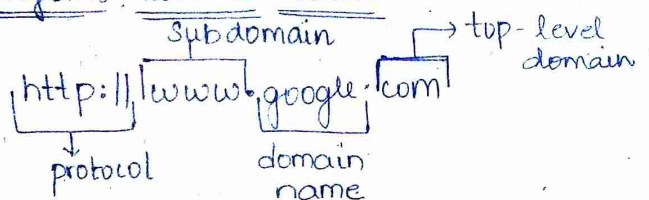 subdomain
top-level
domain
http://www.google.com
protocol
domain
name